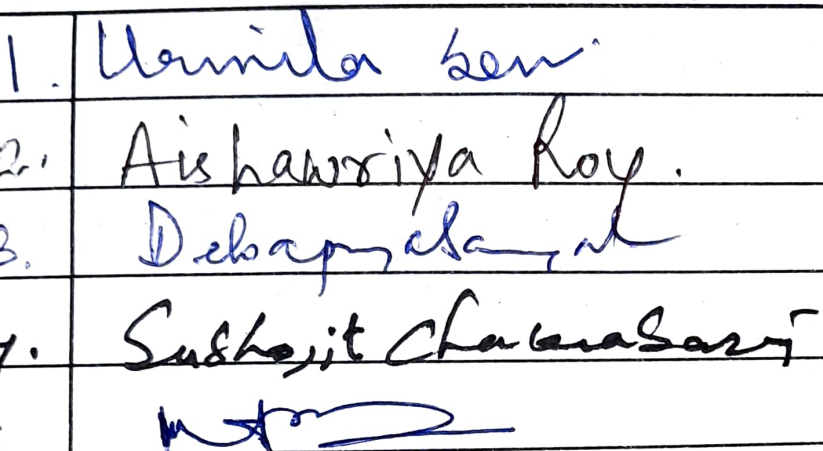 1. Urmila Sen.
2. Aishawriya Roy.
3. Debapriya Sanyal
4. Subhojit Chakraborty